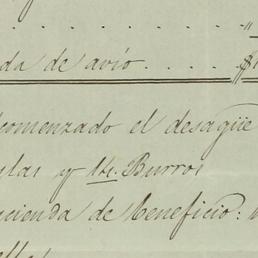 da de avío.....
comenzado el desagüe
ylas y Burros
cienda de Beneficio: